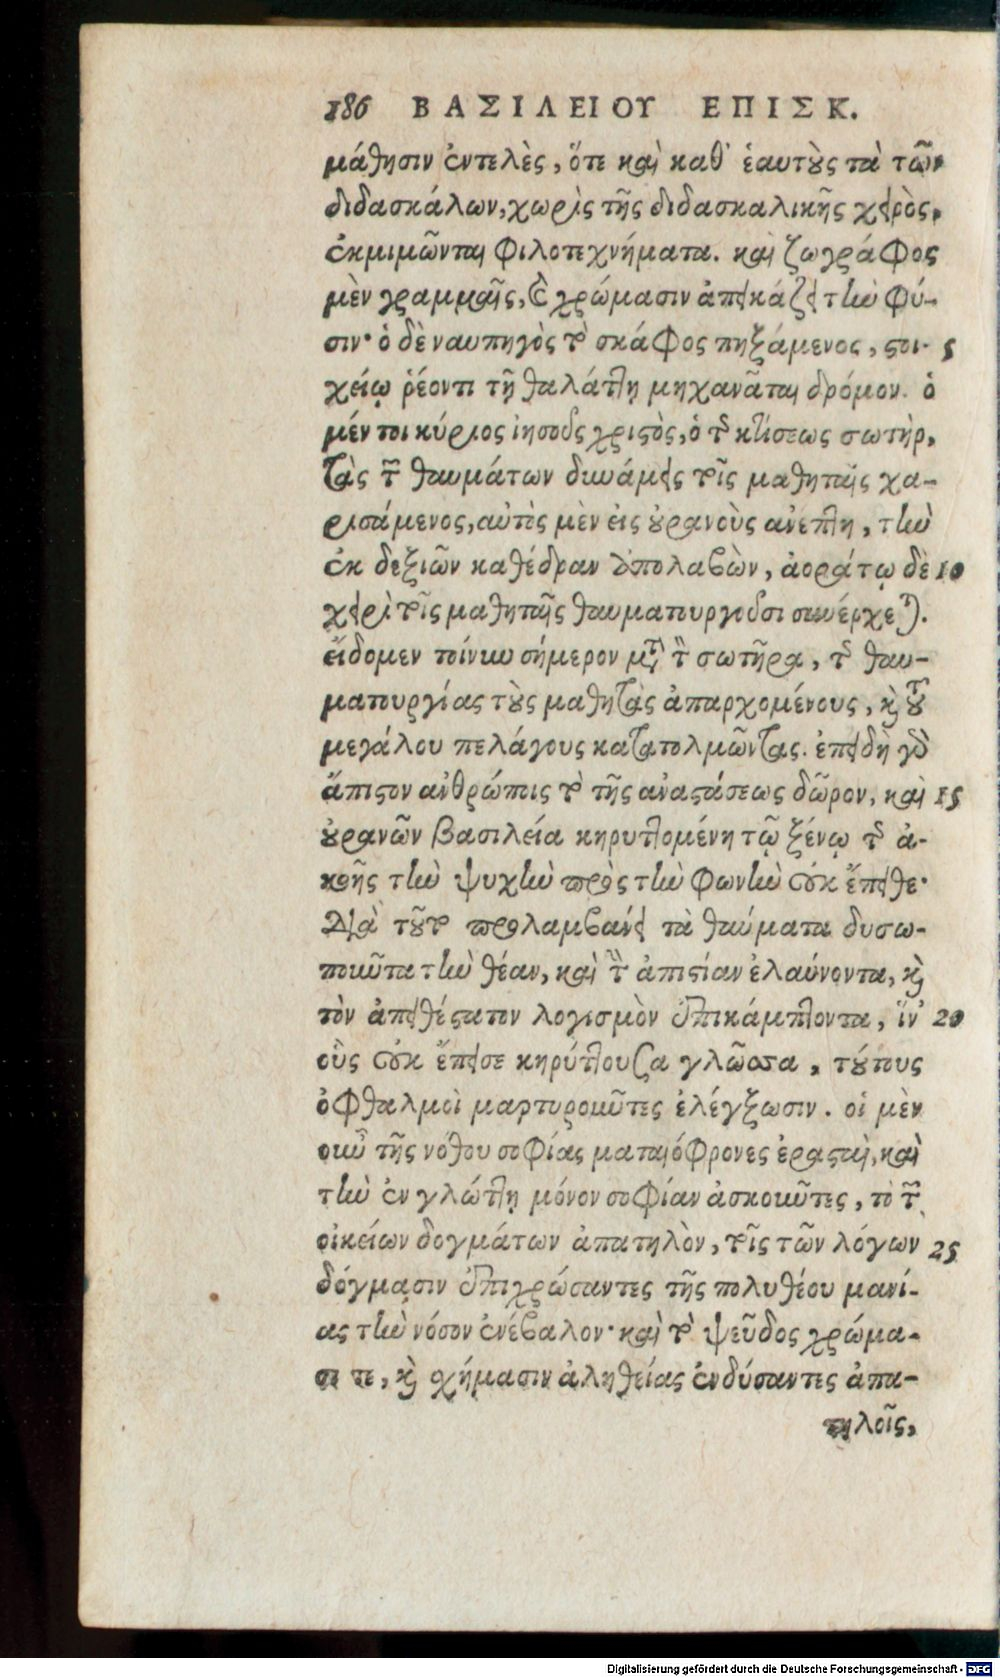 186 ΒΑΣΙΛΕΙΟΥ ΕΠΙΣΚ.
μάθησιν ἐντελὲς, ὅτε καὶ καθ' ἑαυτοὺς τὰ τῶν
διδασκάλων, χωρὶς τῆς διδασκαλικῆς χειρὸς,
ἐκμιμῶνται φιλοτεχνήματα. καὶ ζωγράφος
μὲν γραμμαῖς, καὶ χρώμασιν ἀπεικάζει τὴν φύ-
σιν· ὁ δὲ ναυπηγὸς τὸ σκάφος πηξάμενος, στοι- 5
χείῳ ῥέοντι τῇ θαλάττῃ μηχανᾶται δρόμον. ὁ
μέντοι κύριος ἰησοῦς χριστὸς, ὁ τῆς κτίσεως σωτὴρ,
τὰς τῶν θαυμάτων δυνάμεις τοῖς μαθηταῖς χα-
ρισάμενος, αὐτὸς μὲν εἰς οὐρανοὺς ἀνέπτη, τὴν
ἐκ δεξιῶν καθέδραν ὑπολαβὼν, ἀοράτῳ δὲ 10
χειρὶ τοῖς μαθηταῖς θαυματουργοῦσι συνέρχεται.
εἴδομεν τοίνυν σήμερον μετὰ τὸν σωτῆρα, τῆς θαυ-
ματουργίας τοὺς μαθητὰς ἀπαρχομένους, καὶ τοῦ
μεγάλου πελάγους κατατολμῶντας. ἐπειδὴ γὰρ
ἄπιστον ἀνθρώποις τὸ τῆς ἀναστάσεως δῶρον, καὶ 15
οὐρανῶν βασιλεία κηρυττομένη τῷ ξένῳ τῆς ἀ-
κοῆς τὴν ψυχὴν πρὸς τὴν φωνὴν οὐκ ἔπειθε·
διὰ τοῦτο προλαμβάνει τὰ θαύματα δυσω-
ποῦντα τὴν θέαν, καὶ τὴν ἀπιστίαν ἐλαύνοντα, καὶ
τὸν ἀπειθέστατον λογισμὸν ἐπικάμπτοντα, ἵν' 20
οὓς οὐκ ἔπεισε κηρύττουσα γλῶσσα, τούτους
ὀφθαλμοὶ μαρτυροῦντες ἐλέγξωσιν. οἱ μὲν
οὖν τῆς νόθου σοφίας ματαιόφρονες ἐρασταὶ, καὶ
τὴν ἐν γλώττῃ μόνον σοφίαν ἀσκοῦντες, τὸ τῶν
οἰκείων δογμάτων ἀπατηλὸν, τοῖς τῶν λόγων 25
δόγμασιν ἐπιχρώσαντες τῆς πολυθέου μανί-
ας τὴν νόσον ἐνέβαλον· καὶ τὸ ψεῦδος χρώμα-
σί τε, καὶ σχήμασιν ἀληθείας ἐνδύσαντες ἀπα-
τηλοῖς,
Digitalisierung gefördert durch die Deutsche Forschungsgemeinschaft - DFG